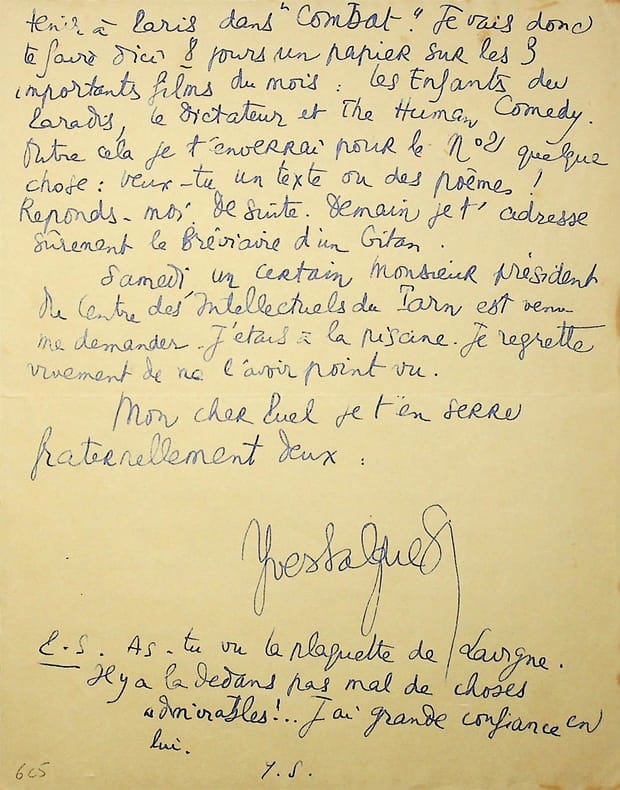 tenir à Paris dans "Combat". Je vais donc
te faire d'ici 8 jours un papier sur les 3
importants films du mois : les Enfants du
Paradis, le Dictateur et The Human Comedy.
Outre cela je t'enverrai pour le N°2 quelque
chose : veux-tu un texte ou des poèmes !
Reponds-moi de suite. Demain je t'adresse
sûrement le Bréviaire d'un Gitan.
Samedi, un certain Monsieur président
du Centre des Intellectuels du Tarn est venu
me demander. J'étais à la piscine. Je regrette
vivement de ne l'avoir point vu.
Mon cher Puel je t'en serre
fraternellement deux :
Yves Salgues
P.S. As-tu vu la plaquette de Lavigne.
Il y a là dedans pas mal de choses
admirables!.. J'ai grande confiance en
lui.
Y.S.
605